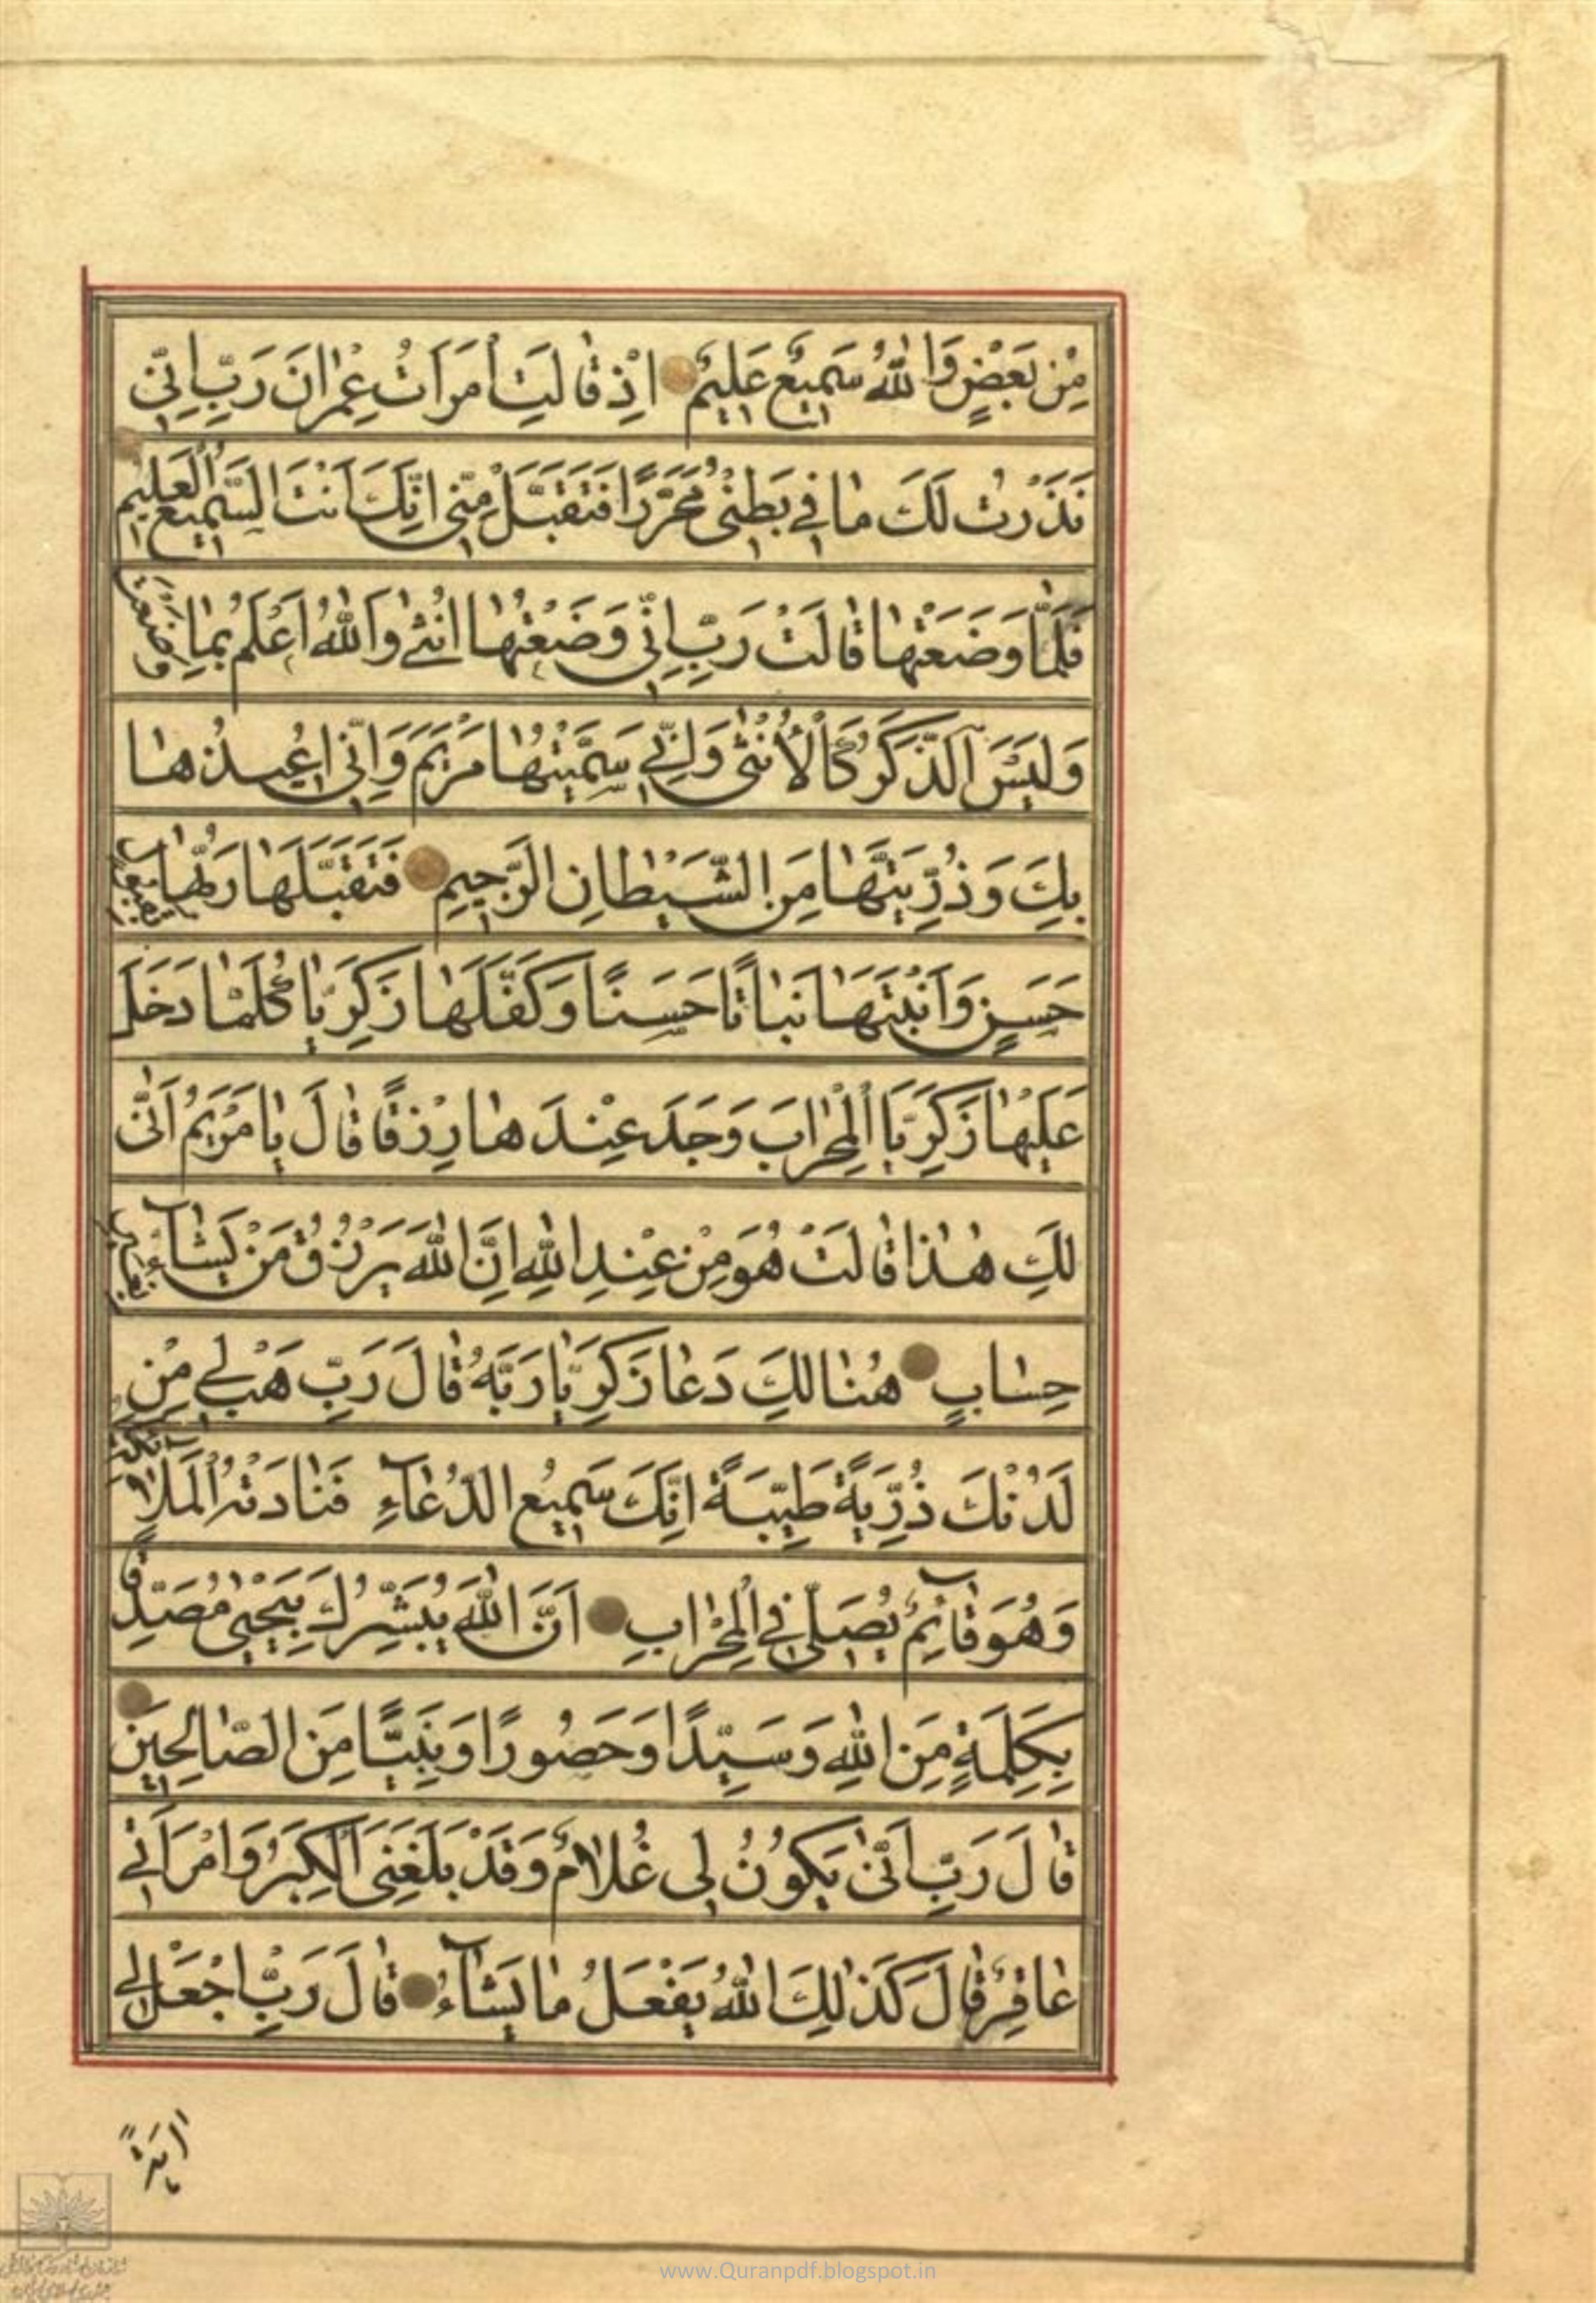 مِنْ بَعْضٍ وَاللّٰهُ سَمِيعٌ عَلِيمٌ اِذْ قٰالَتِ امْرَاَتُ عِمْرٰانَ رَبِّ اِنِّي
نَذَرْتُ لَكَ مٰا فِي بَطْنِي مُحَرَّرًا فَتَقَبَّلْ مِنِّي اِنَّكَ اَنْتَ السَّمِيعُ الْعَلِيمُ
فَلَمّٰا وَضَعَتْهٰا قٰالَتْ رَبِّ اِنِّي وَضَعْتُهٰا اُنْثٰى وَاللّٰهُ اَعْلَمُ بِمٰا وَضَعَتْ
وَلَيْسَ الذَّكَرُ كَالْاُنْثٰى وَاِنِّي سَمَّيْتُهٰا مَرْيَمَ وَاِنِّي اُعِيذُهٰا
بِكَ وَذُرِّيَّتَهٰا مِنَ الشَّيْطٰانِ الرَّجِيمِ فَتَقَبَّلَهٰا رَبُّهٰا بِقَبُولٍ
حَسَنٍ وَاَنْبَتَهٰا نَبٰاتًا حَسَنًا وَكَفَّلَهٰا زَكَرِيّٰا كُلَّمٰا دَخَلَ
عَلَيْهٰا زَكَرِيَّا الْمِحْرٰابَ وَجَدَ عِنْدَهٰا رِزْقًا قٰالَ يٰا مَرْيَمُ اَنّٰى
لَكِ هٰذٰا قٰالَتْ هُوَ مِنْ عِنْدِ اللّٰهِ اِنَّ اللّٰهَ يَرْزُقُ مَنْ يَشٰآءُ بِغَيْرِ
حِسٰابٍ هُنٰالِكَ دَعٰا زَكَرِيّٰا رَبَّهُ قٰالَ رَبِّ هَبْ لِي مِنْ
لَدُنْكَ ذُرِّيَّةً طَيِّبَةً اِنَّكَ سَمِيعُ الدُّعٰآءِ فَنٰادَتْهُ الْمَلٰائِكَةُ
وَهُوَ قٰآئِمٌ يُصَلِّي فِي الْمِحْرٰابِ اَنَّ اللّٰهَ يُبَشِّرُكَ بِيَحْيٰى مُصَدِّقًا
بِكَلِمَةٍ مِنَ اللّٰهِ وَسَيِّدًا وَحَصُورًا وَنَبِيًّا مِنَ الصّٰالِحِينَ
قٰالَ رَبِّ اَنّٰى يَكُونُ لِي غُلٰامٌ وَقَدْ بَلَغَنِيَ الْكِبَرُ وَامْرَاَتِي
عٰاقِرٌ قٰالَ كَذٰلِكَ اللّٰهُ يَفْعَلُ مٰا يَشٰآءُ قٰالَ رَبِّ اجْعَلْ لِي
اٰيَةً
www.Quranpdf.blogspot.in